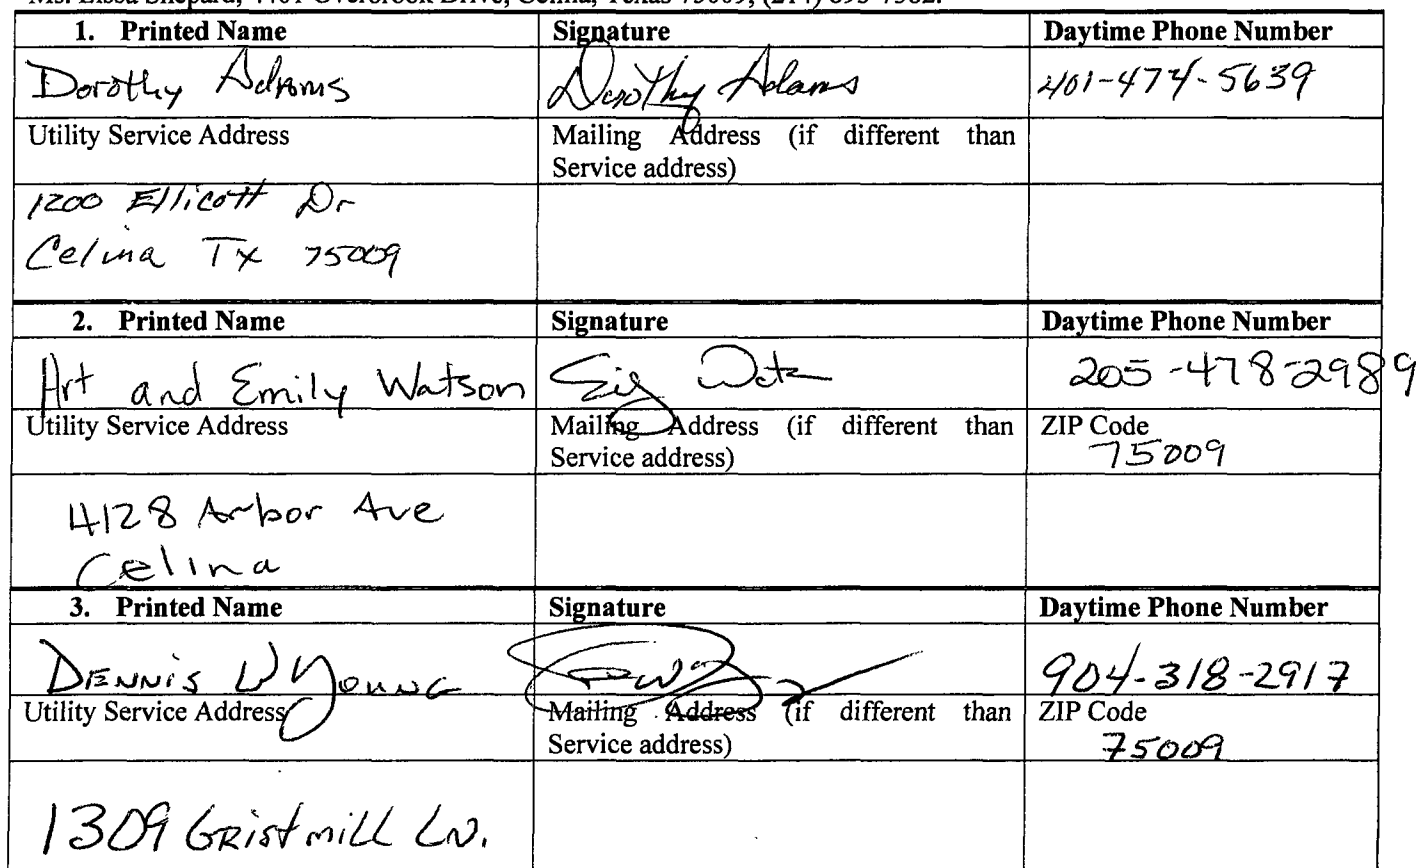 1. Printed Name Signature Daytime Phone Number
Dorothy Adams Dorothy Adams 401-474-5639
Utility Service Address Mailing Address (if different than
Service address)
1200 Ellicott Dr
Celina Tx 75009
2. Printed Name Signature Daytime Phone Number
Art and Emily Watson 205-478-2989
Utility Service Address Mailing Address (if different than ZIP Code
Service address) 75009
4128 Arbor Ave
Celina
3. Printed Name Signature Daytime Phone Number
Dennis W Young 904-318-2917
Utility Service Address Mailing Address (if different than ZIP Code
Service address) 75009
1309 Gristmill Ln.